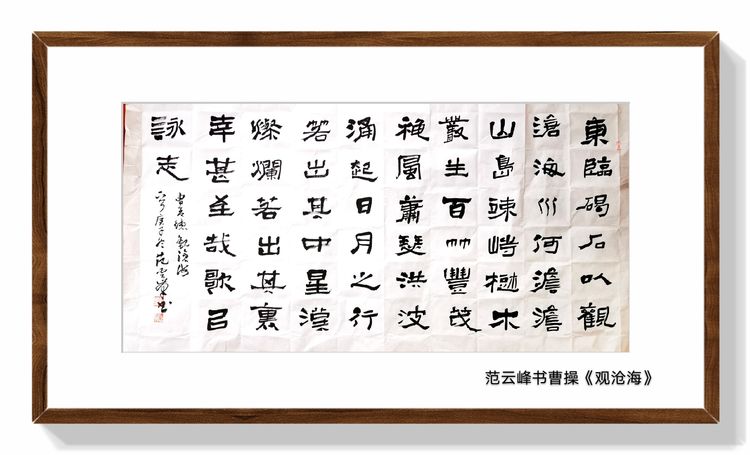 東臨碣石以觀
滄海水何澹澹
山島竦峙樹木
叢生百艸豐茂
秋風蕭瑟洪波
涌起日月之行
若出其中星漢
燦爛若出其裏
幸甚至哉歌以
詠志
曹孟德觀滄海
庚子冬范云峰书
范云峰书曹操《观沧海》